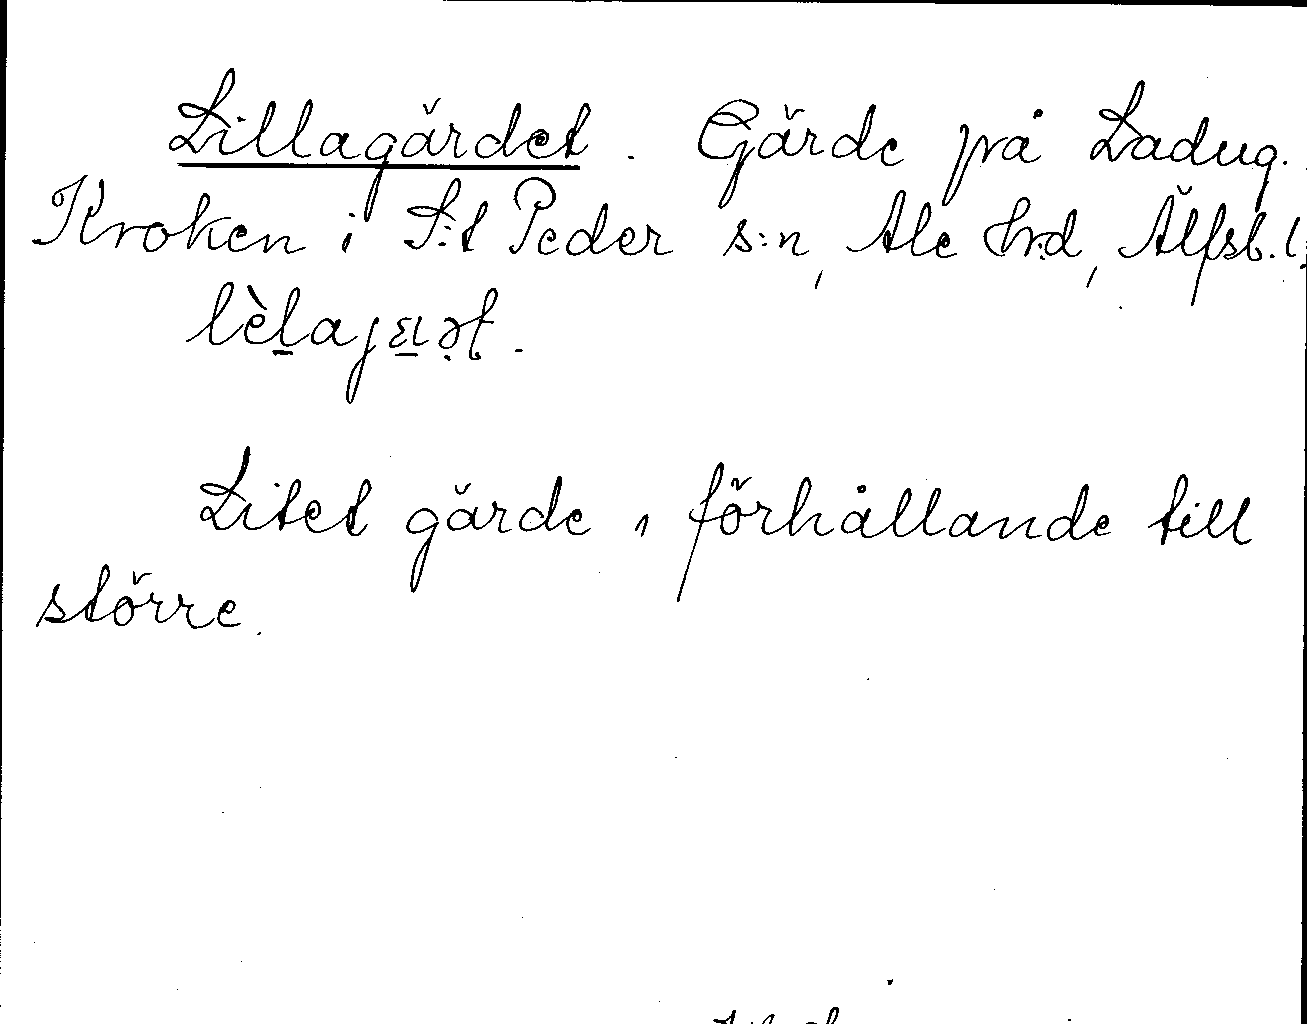 Lillagärdet. Gärde på Ladug.
Kroken i S:t Peder s:n, Ale hrd, Älfsb. l.
Litet gärde i förhållande till
större.